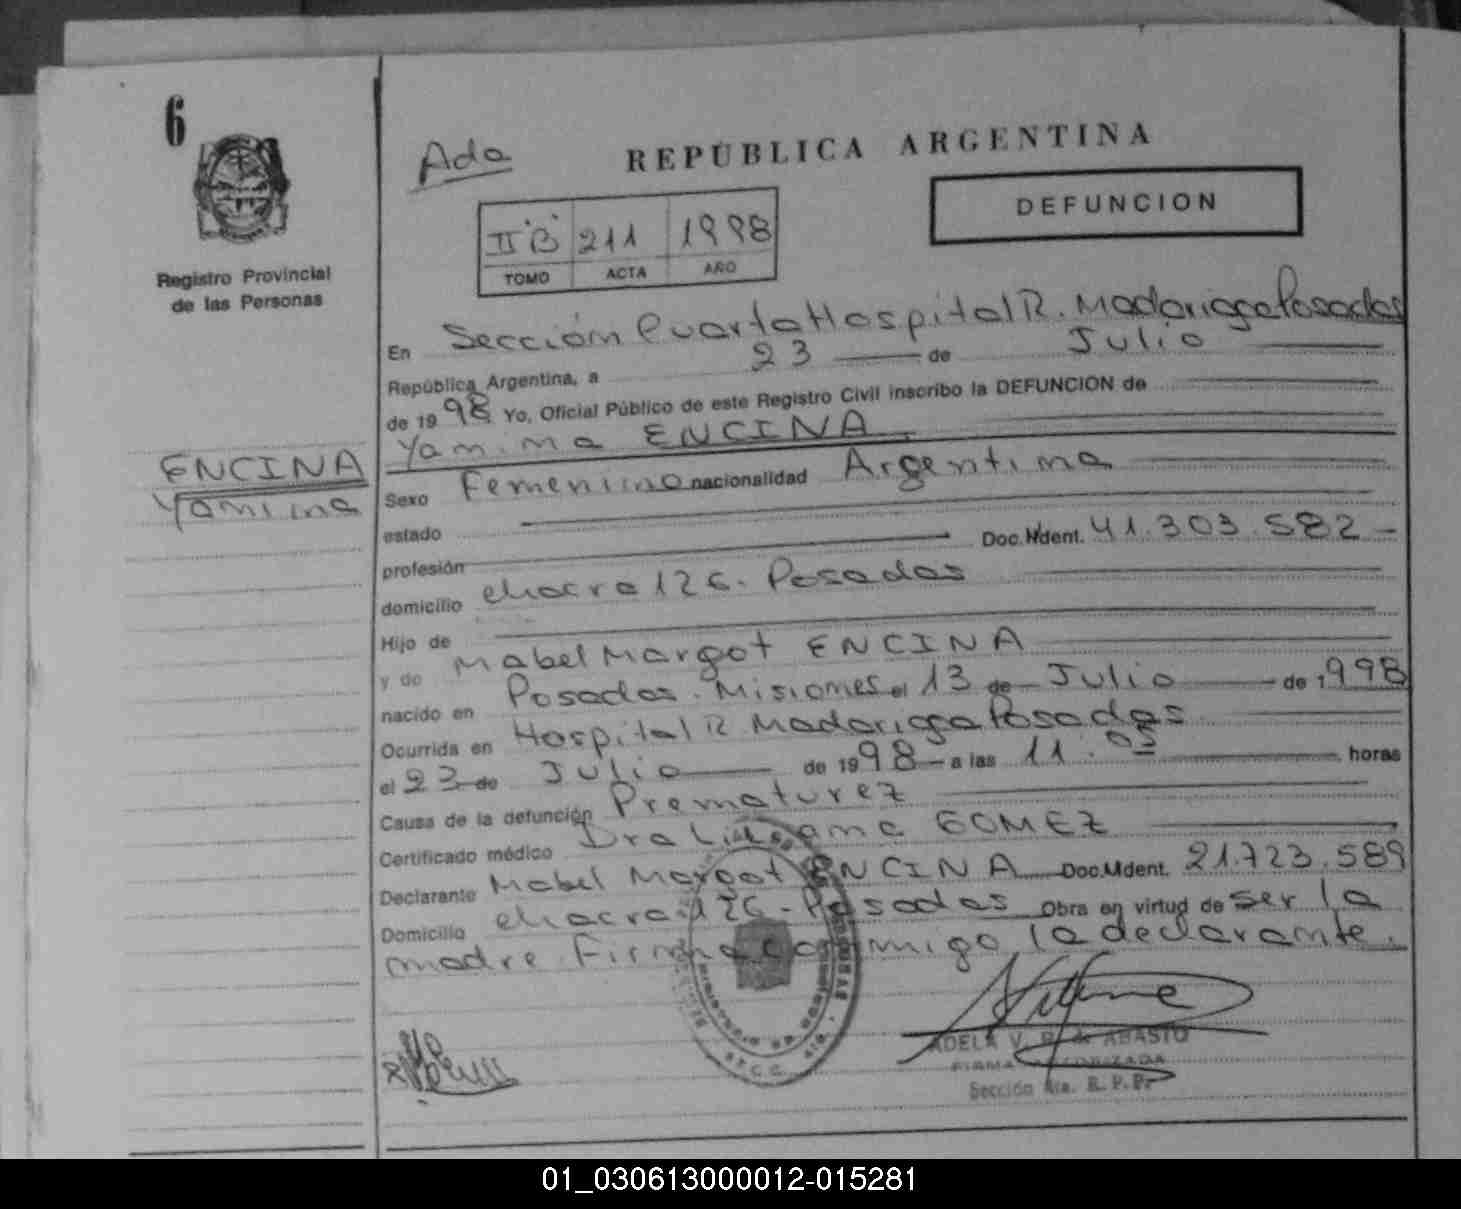 6
Ada
REPÚBLICA ARGENTINA
DEFUNCION
II "B" 211 1998
TOMO ACTA AÑO
Registro Provincial
de las Personas
En Sección Cuarta Hospital R. Madariaga Posadas
República Argentina, a 23 de Julio
de 1998 Yo, Oficial Público de este Registro Civil inscribo la DEFUNCION de
Yamina ENCINA
ENCINA
Yamina
Sexo Femenino nacionalidad Argentina
estado
profesión Doc. Ident. 41.303.582-
domicilio chacra 126. Posadas
Hijo de
y de Mabel Margot ENCINA
nacido en Posadas. Misiones el 13 de Julio de 1998
Ocurrida en Hospital R. Madariaga Posadas
el 23 de Julio de 1998 a las 11:05 horas
Causa de la defunción Prematurez
Certificado médico Dra GOMEZ
Declarante Mabel Margot ENCINA Doc. Ident. 21.723.589
Domicilio chacra 126 - Posadas Obra en virtud de ser la
madre. Firma conmigo la declarante.
ADELA V. de ABASTO
FIRMA AUTORIZADA
Sección 4ta. R. P. P.
01_030613000012-015281